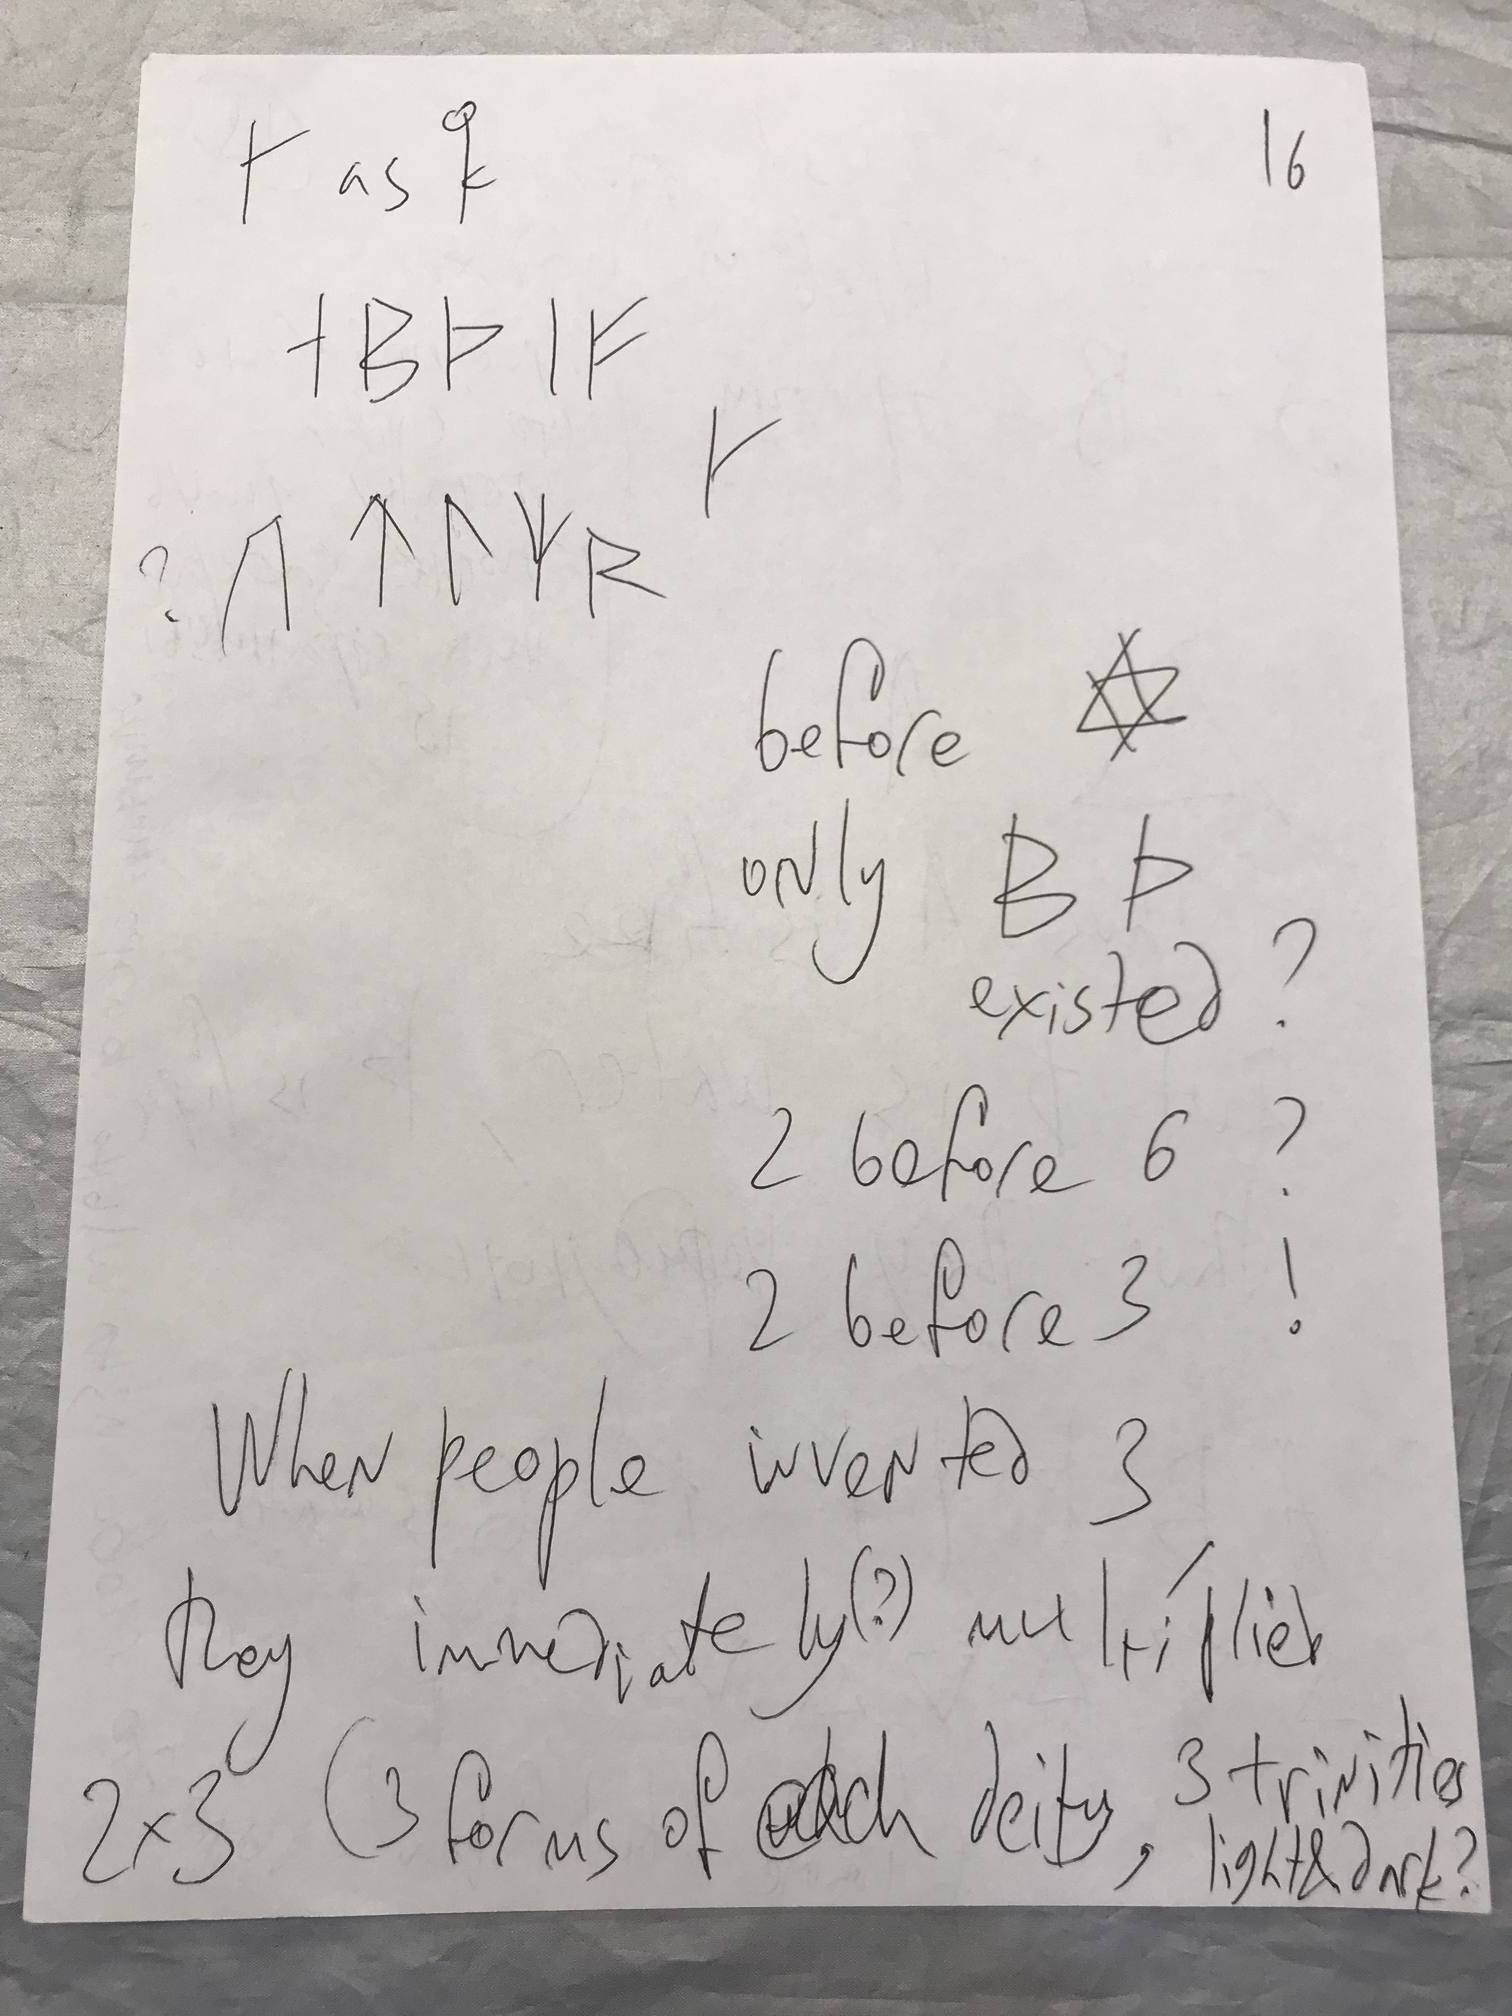 ᚋ as k
16
ᛆ B ᚦ ᛁ ᚠ
ᚋ
? ᚢ ᛏ ᛚ ᛘ ᚱ
before ✡
only B ᚦ
existed ?
2 before 6 ?
2 before 3 !
When people invented 3
they immediately(?) multiplied
2×3 (3 forms of each deity, 3 trinities
light & dark?